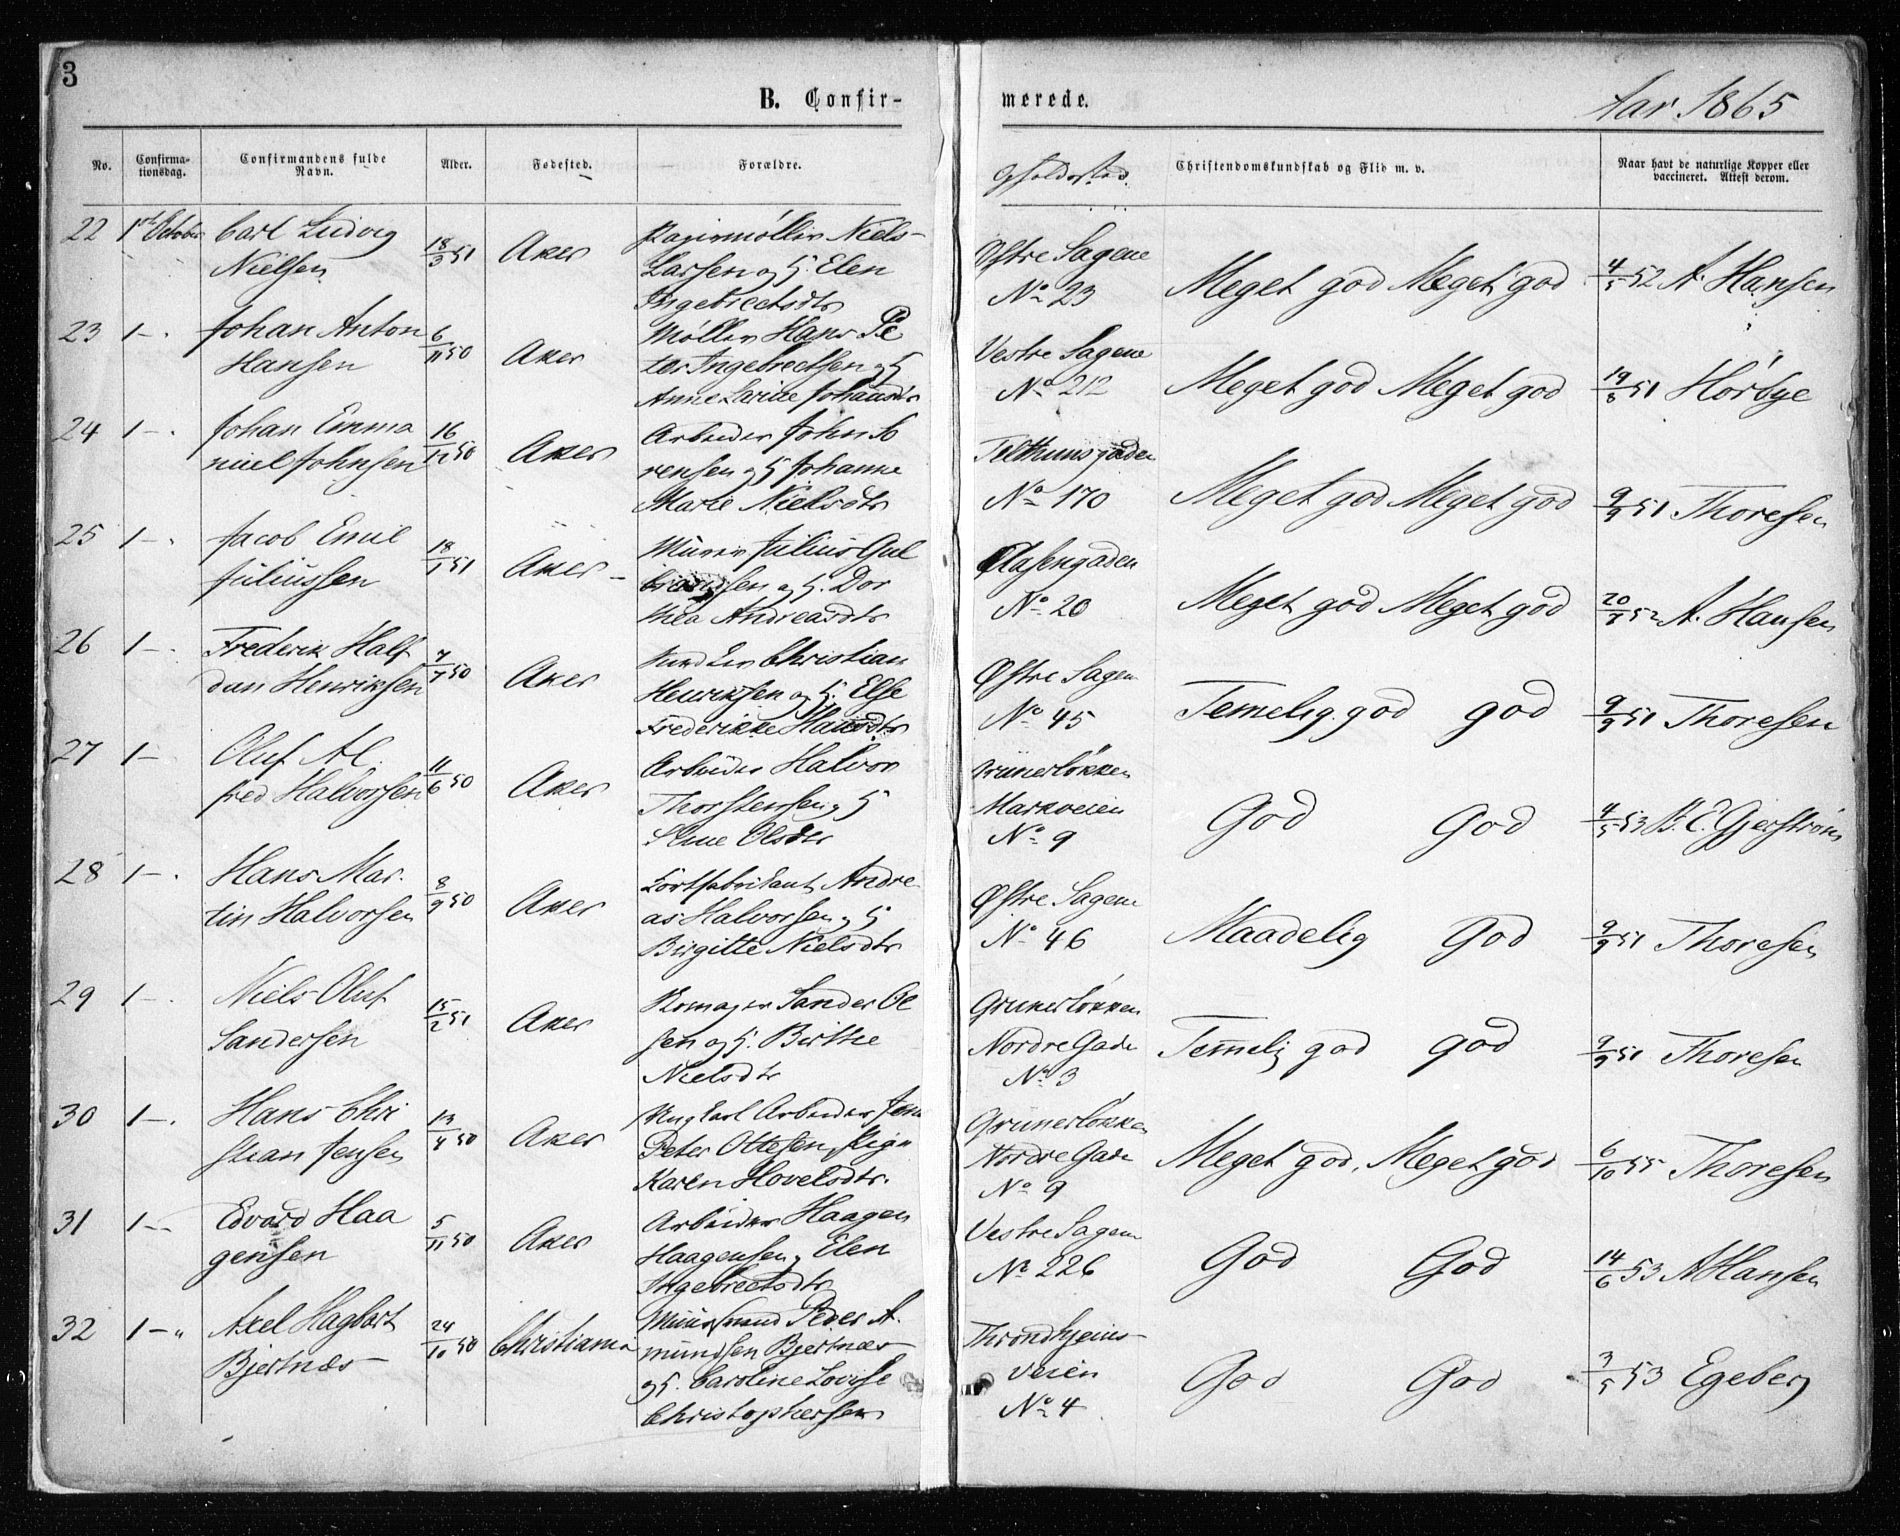 3
B. Confir-
merede.
Aar 1865
No.
Confirma-
tionsdag.
Confirmandens fulde
Navn.
Alder.
Fødested.
Forældre.
Opholdssted.
Christendomskundskab og Flid m. v.
Naar havt de naturlige Kopper eller
vaccineret. Attest derom.
22 1ste October Carl Ludvig
Nielsen 18/3 51 Aker
Papirmøller Niels
Larsen og H. Elen
Ingebretsdtr
Østre Sagene
No 23
Meget god Meget god 4/5 52 A. Hansen
23 1 - . Johan Anton
Hansen 6/11 50 Aker
Møller Hans Pe
ter Ingebretsen og H
Anne Larine Johansdtr
Vestre Sagene
No 212
Meget god Meget god 19/8 51 Hørbye
24 1 - . Johan Emma
nuel Johnsen 16/12 50 Aker
Arbeider John So
rensen og H Johanne
Marie Nielsdtr
Telthusgaden
No 170
Meget god Meget god 9/9 51 Thoresen
25 1 - . Jacob Emil
Juliussen 18/1 51 Aker -
Murer Julius Gul
brandsen og H. Dor
thea Andreasdtr
Olafsengaden
No 20
Meget god Meget god 20/7 52 A. Hansen
26 1 - . Frederik Half
dan Henriksen 7/7 50 Aker
Christian
Henriksen og H. Else
Frederikke Hansdtr
Østre Sagen
No 45
Temelig god god 9/9 51 Thoresen
27 1 - Oluf Al
fred Halvorsen 11/6 50 Aker
Arbeider Halvor
Thorstensen og H
Olsdtr
Grünerløkken
Markveien
No 9
God God 4/5 53 B. C. Gjerstrøm
28 1 - . Hans Mar
tin Halvorsen 8/9 50 Aker
Andre
as Halvorsen og H
Birgitte Nielsdtr
Østre Sagene
No 46
Maadelig God 9/9 51 Thoresen
29 1 - . Niels Oluf
Sandersen 15/2 51 Aker
Sander Ol
sen og H. Birthe
Nielsdtr
Grunerløkken
Nordre Gade
No 3
Temelig god god 9/9 51 Thoresen
30 1 - . Hans Chri
stian Jensen 13/4 50 Aker
Ungkarl Arbeider Jens
Peter Ottesen, Pige
Karen Hovelsdtr.
Grunerløkken
Nordre Gade
No 9
Meget god, Meget god 6/10 55 Thoresen
31 1 - - Edvard Haa
gensen 5/11 50 Aker
Arbeider Haagen
Haagensen og Elen
Ingebretsdtr
Vestre Sagene
No 226
God God 14/6 53 A Hansen
32 1 - „ Axel Hagbart
Bjertnæs 24/10 50 Christiania
Muursvend Peder A.
mundsen Bjertnæs
og H. Caroline Lovise
Christophersen
Throndhjems-
veien
No 4
God God 3/5 53 Egeberg